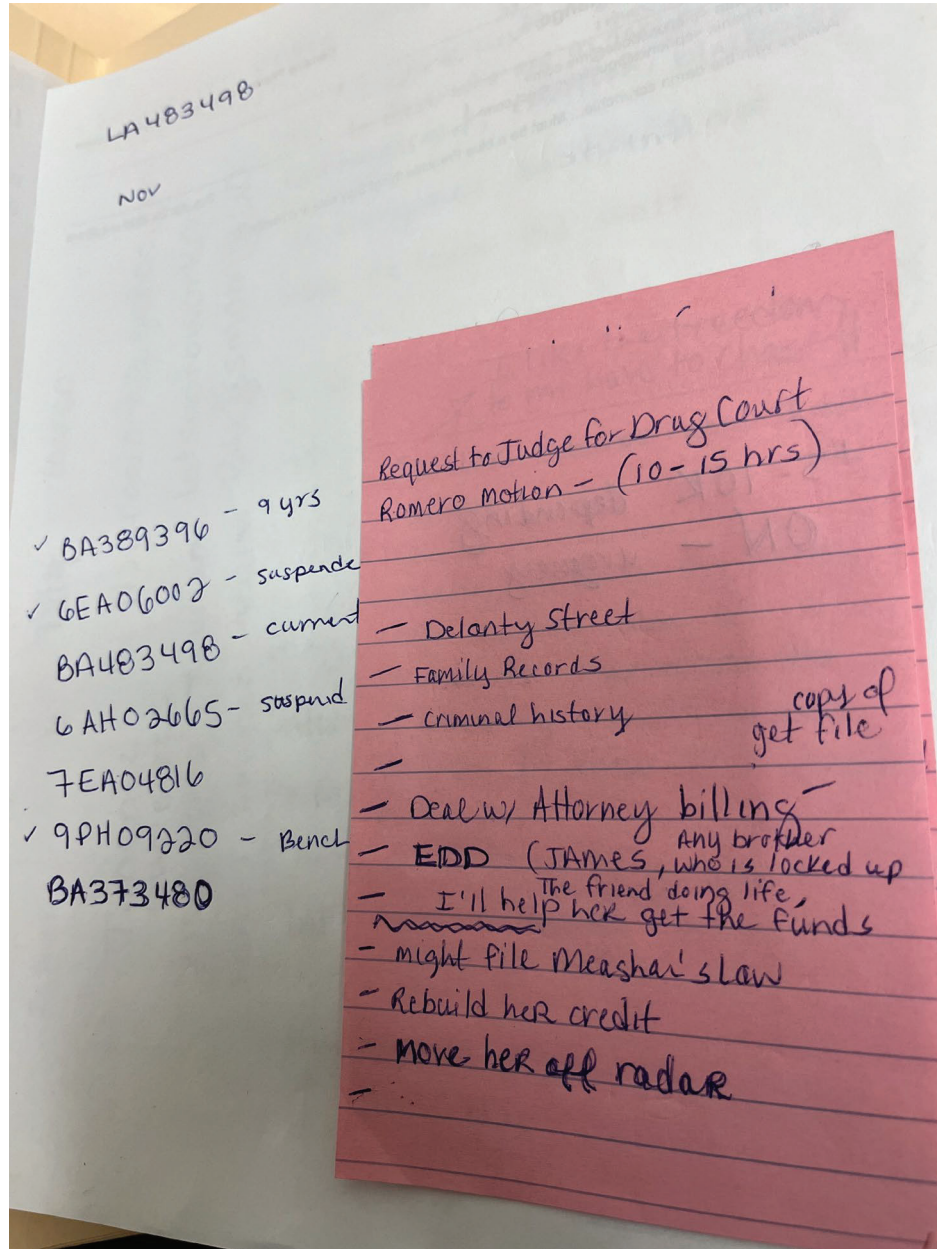 LA483498
Nov
✓ BA389396 - 9 yrs
✓ 6EA06002 - suspende
BA483498 - current
6AH02665 - suspend
7EA04816
✓ 9PH09220 - Bench
BA373480
Request to Judge for Drug Court
Romero Motion - (10-15 hrs)
- Delanty Street
- Family Records
- criminal history
copy of
get file
-
- Deal w/ Attorney billing -
Any brother
- EDD (JAMES, who is locked up
The friend doing life,
- I'll help her get the funds
- might file Meashai's Law
- Rebuild her credit
- move her off radar
-